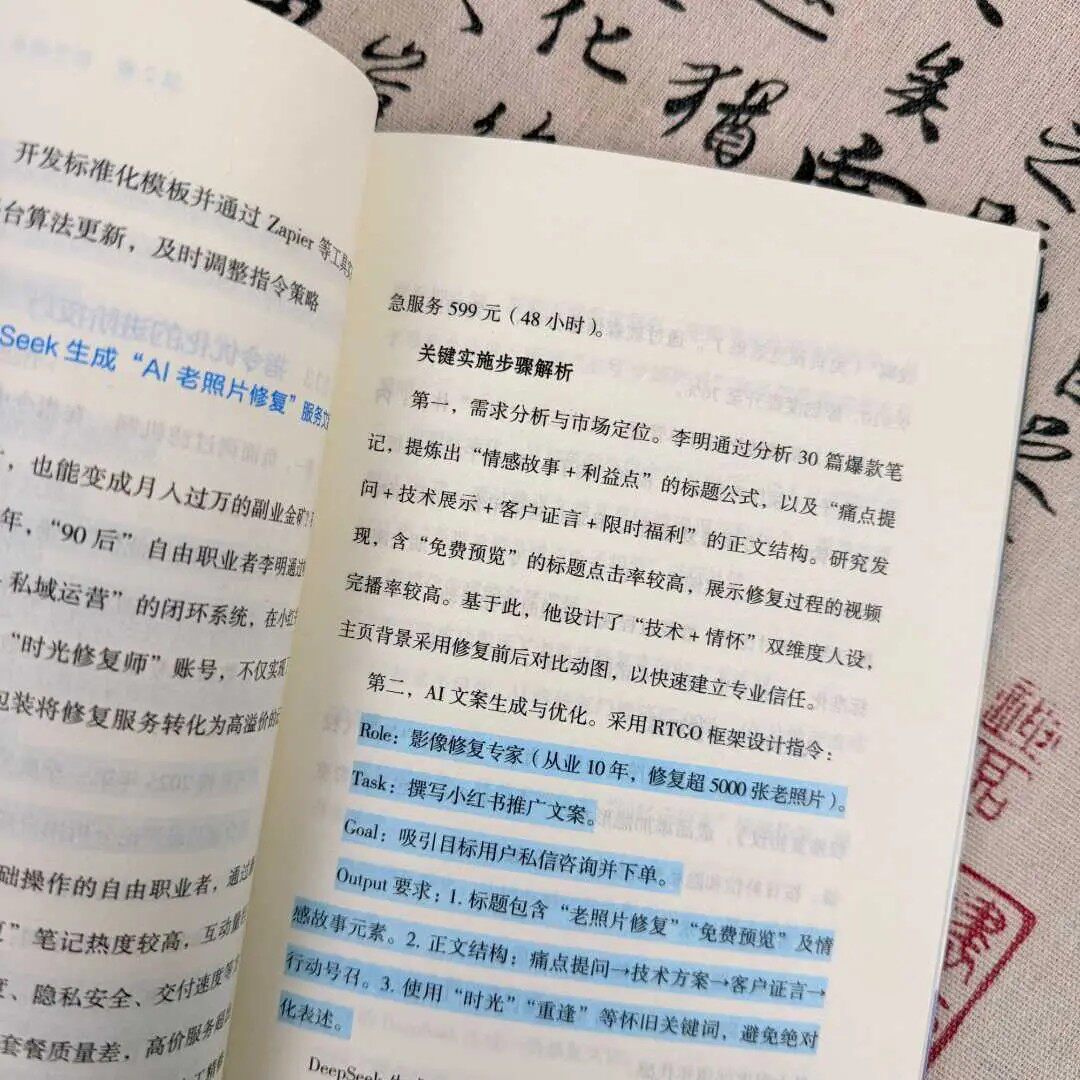 开发标准化模板并通过 Zapier 等工具
台算法更新，及时调整指令策略
Seek 生成“AI 老照片修复”服务
，也能变成月入过万的副业金矿
年，“90 后”自由职业者李明通过
私域运营”的闭环系统，在小红
“时光修复师”账号，不仅实现
包装将修复服务转化为高溢价的
础操作的自由职业者，通过
”笔记热度较高，互动量
、隐私安全、交付速度等
套餐质量差，高价服务
急服务 599 元（48 小时）。
关键实施步骤解析
第一，需求分析与市场定位。李明通过分析 30 篇爆款笔
记，提炼出“情感故事 + 利益点”的标题公式，以及“痛点提
问 + 技术展示 + 客户证言 + 限时福利”的正文结构。研究发
现，含“免费预览”的标题点击率较高，展示修复过程的视频
完播率较高。基于此，他设计了“技术 + 情怀”双维度人设，
主页背景采用修复前后对比动图，以快速建立专业信任。
第二，AI 文案生成与优化。采用 RTGO 框架设计指令：
Role：影像修复专家（从业 10 年，修复超 5000 张老照片）。
Task：撰写小红书推广文案。
Goal：吸引目标用户私信咨询并下单。
Output 要求：1. 标题包含“老照片修复”“免费预览”及情
感故事元素。2. 正文结构：痛点提问→技术方案→客户证言→
行动号召。3. 使用“时光”“重逢”等怀旧关键词，避免绝对
化表述。
DeepSeek